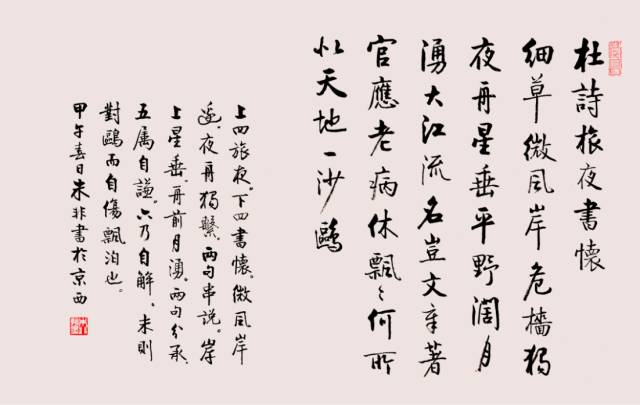 杜詩旅夜書懷
細草微風岸危檣獨
夜舟星垂平野闊月
湧大江流名豈文章著
官應老病休飄〻何所
似天地一沙鷗
上四旅夜。下四書懷。微風岸
邊。夜舟獨繫。兩句串説。岸
上星垂。舟前月湧。兩句分承。
五属自謙。六乃自解。末則
對鷗而自傷飄泊也。
甲午春日朱非書於京西